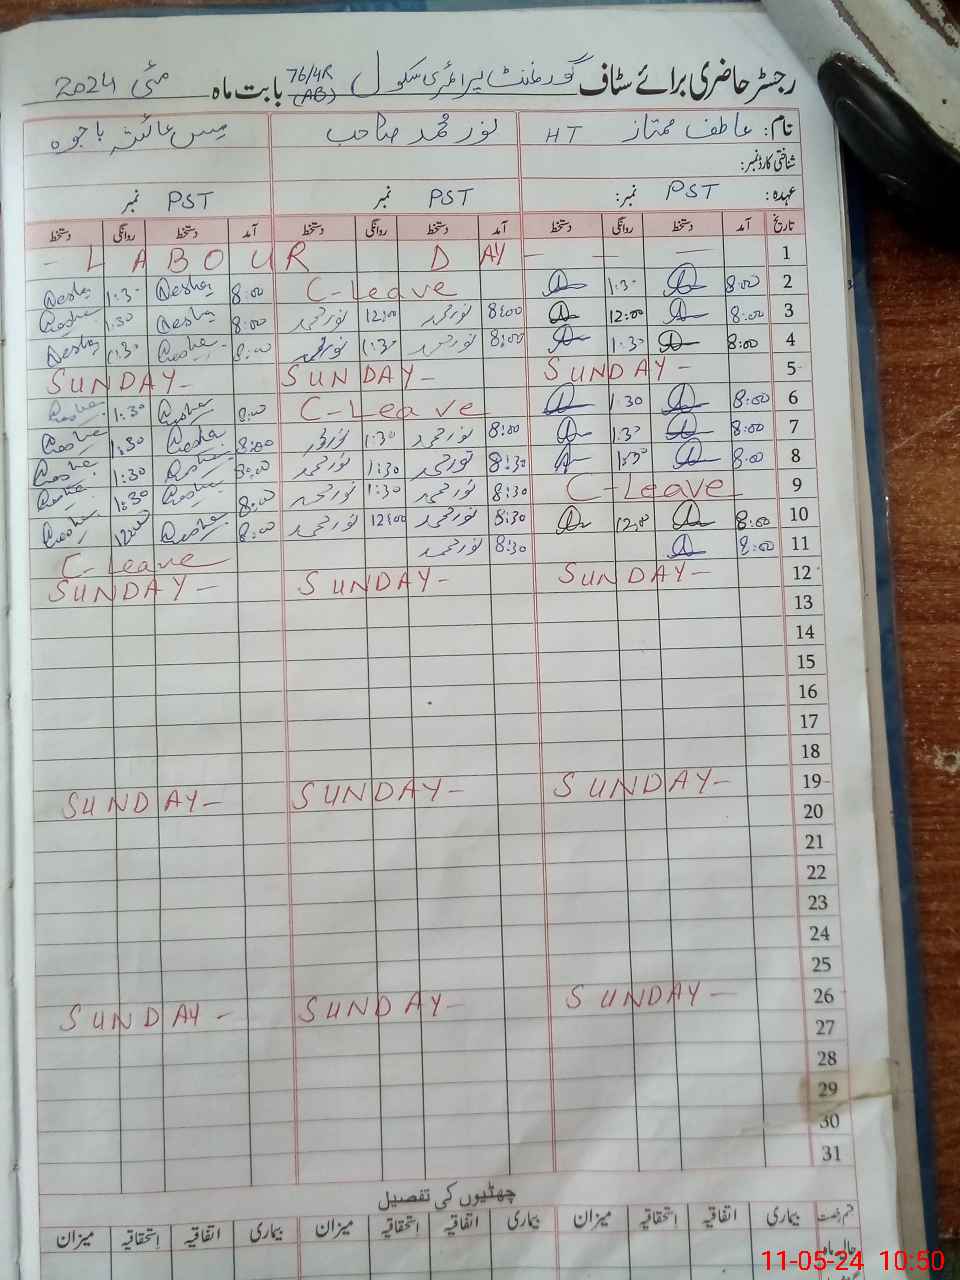 رجسٹر حاضری برائے سٹاف گورنمنٹ پرائمری سکول 76/4R (AB) بابت ماہ مئی 2024
نام: عاطف ممتاز HT نور محمد صاحب مس عائشہ باجوہ
شناختی کارڈ نمبر:
عہدہ: PST نمبر: PST نمبر PST نمبر
تاریخ آمد دستخط روانگی دستخط آمد دستخط روانگی دستخط آمد دستخط روانگی دستخط
1 - LABOUR DAY - - -
2 8:00 1:30 C-Leave 8:00 Aesha 1:30 Aesha
3 8:00 12:00 8:00 نور محمد 12:00 نور محمد 8:00 Aesha 1:30 Aesha
4 8:00 1:30 8:00 نور محمد 1:30 نور محمد 8:00 Aesha 1:30 Aesha
5 SUNDAY - SUNDAY - SUNDAY -
6 8:00 1:30 C-Leave 8:00 Aesha 1:30 Aesha
7 8:00 1:30 8:00 نور محمد 1:30 نور محمد 8:00 Aesha 1:30 Aesha
8 8:00 1:30 8:30 نور محمد 1:30 نور محمد 8:00 Aesha 1:30 Aesha
9 C-Leave 8:30 نور محمد 1:30 نور محمد 8:00 Aesha 1:30 Aesha
10 8:00 12:00 8:30 نور محمد 12:00 نور محمد 8:00 Aesha 12:00 Aesha
11 8:00 8:30 نور محمد C-Leave
12 SUNDAY - SUNDAY - SUNDAY -
13
14
15
16
17
18
19 SUNDAY - SUNDAY - SUNDAY -
20
21
22
23
24
25
26 SUNDAY - SUNDAY - SUNDAY -
27
28
29
30
31
چھٹیوں کی تفصیل
قسم رخصت بیماری اتفاقیہ استحقاقیہ میزان بیماری اتفاقیہ استحقاقیہ میزان بیماری اتفاقیہ استحقاقیہ میزان
حالیہ ماہ
11-05-24 10:50